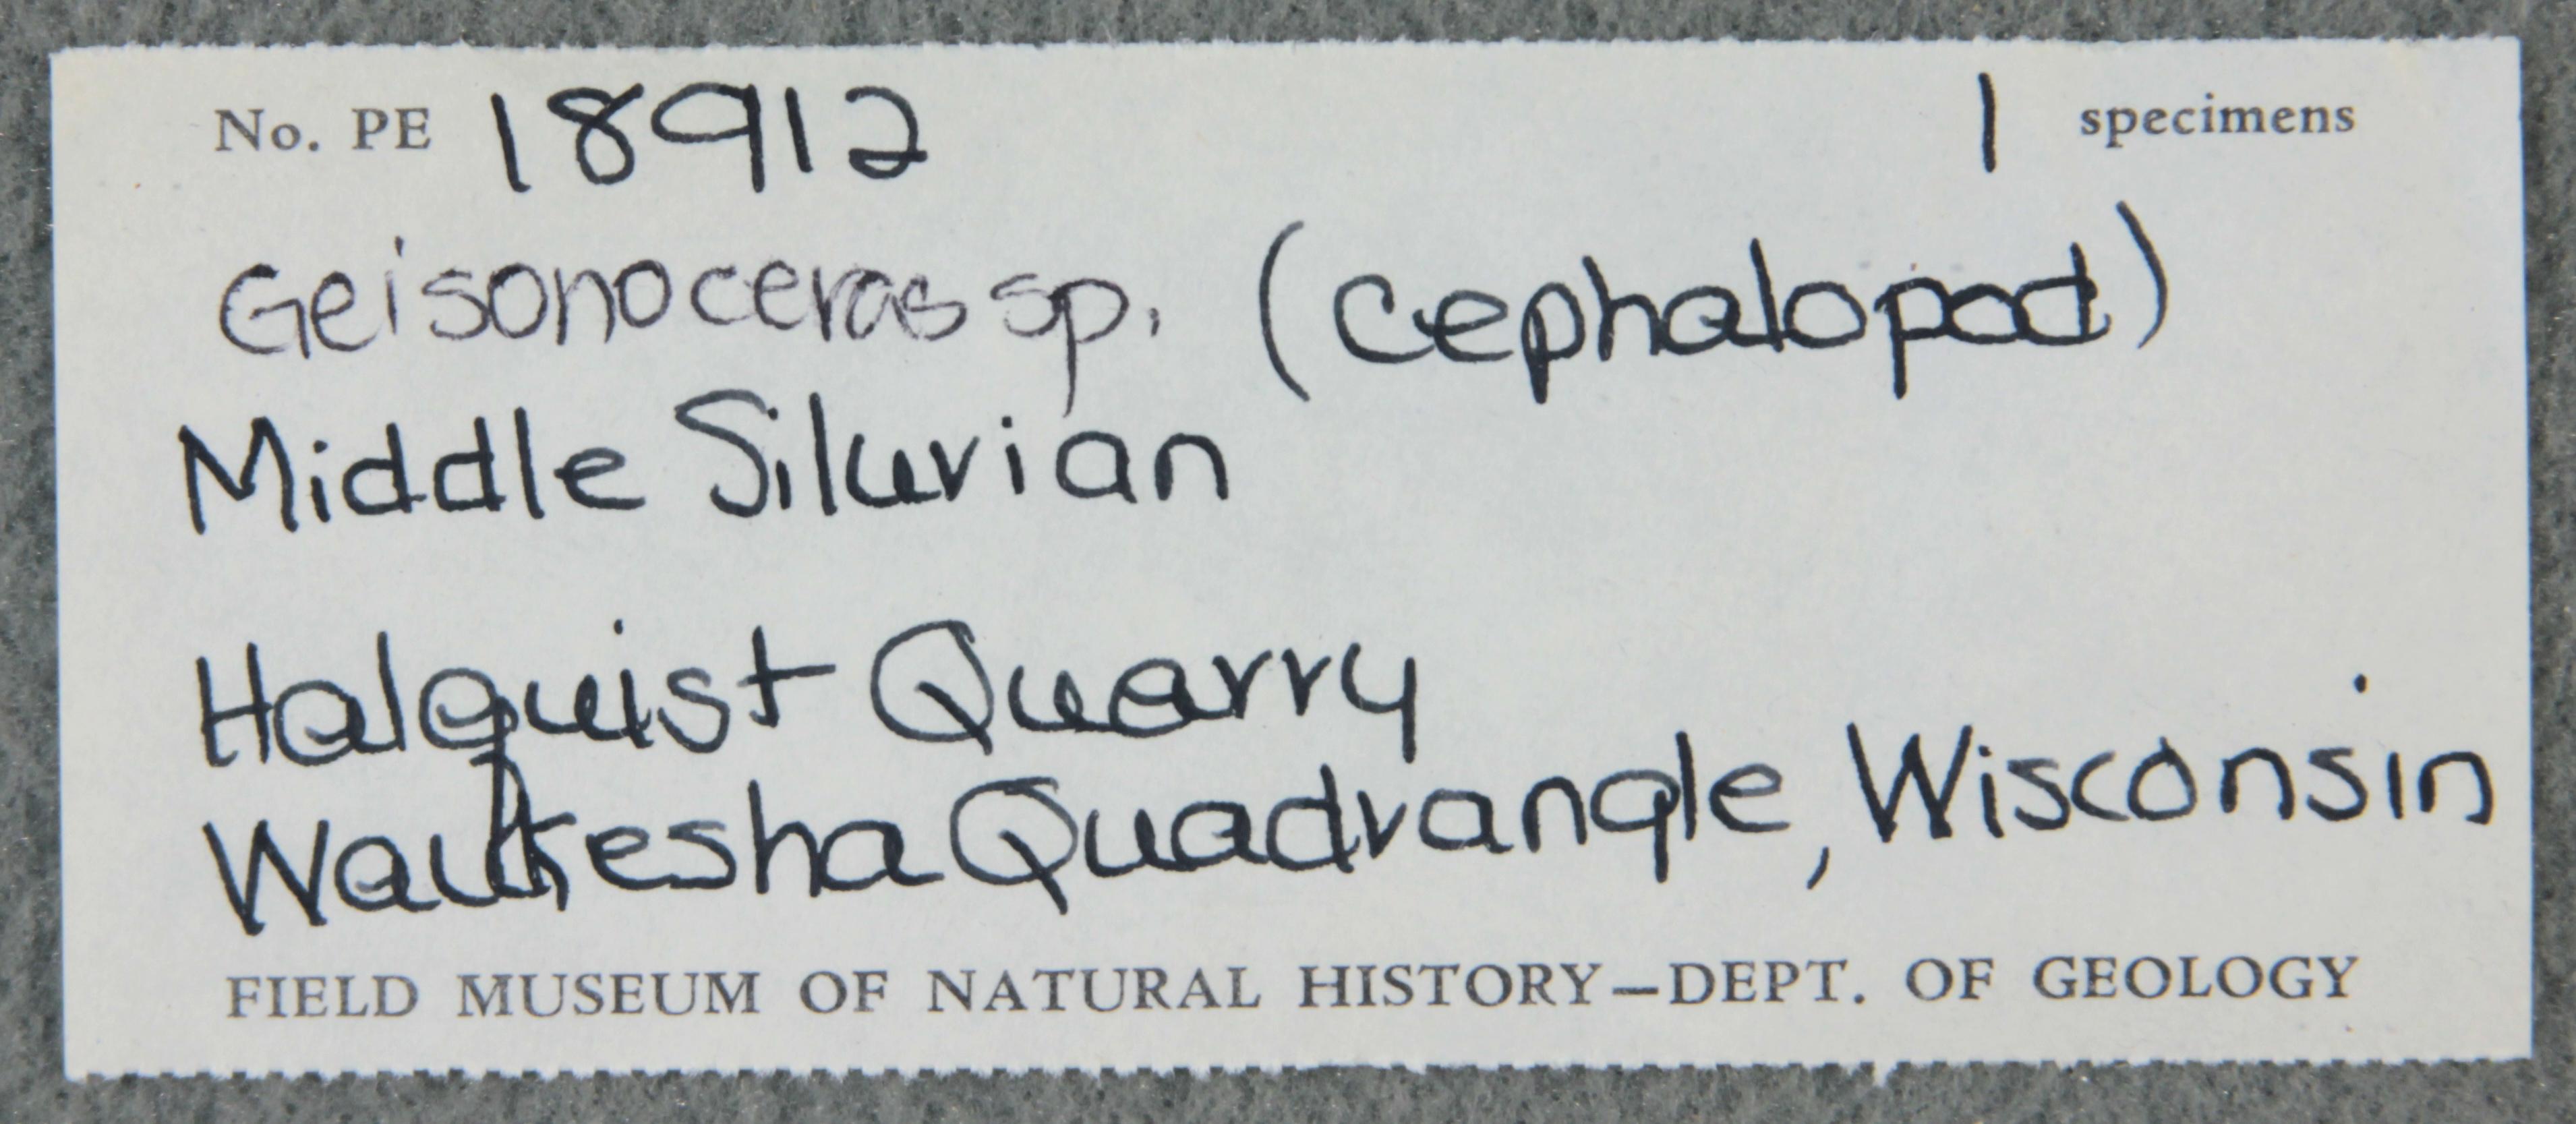 No. PE 18912 1 specimens
Geisonoceras sp. (Cephalopod)
Middle Silurian
Halquist Quarry
Waukesha Quadrangle, Wisconsin
FIELD MUSEUM OF NATURAL HISTORY—DEPT. OF GEOLOGY